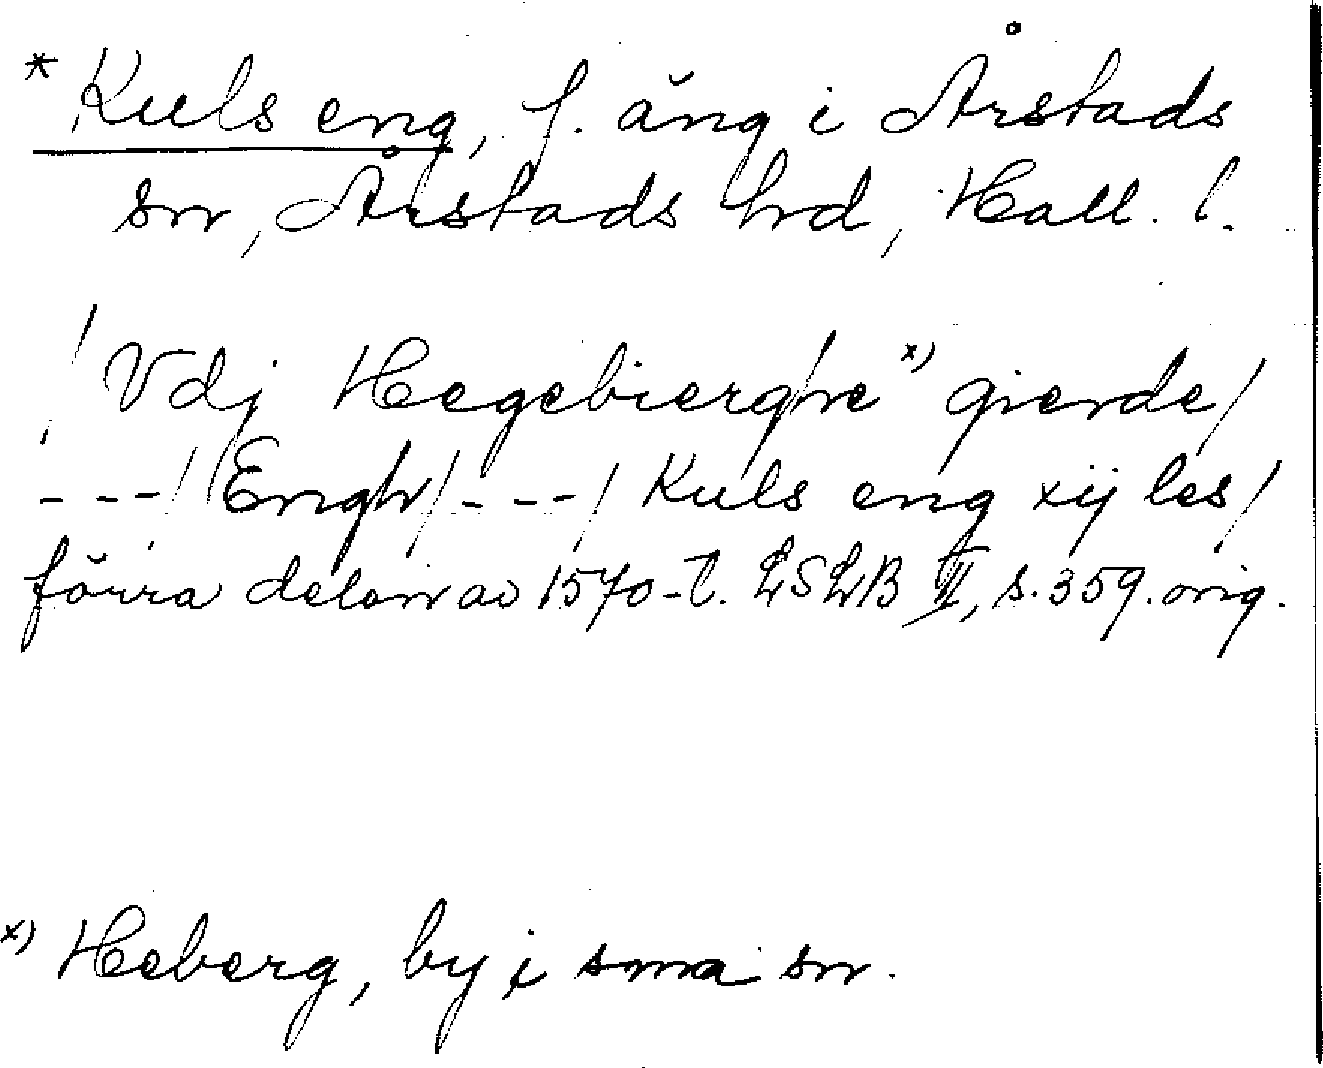 * Kuls eng, f. äng i Årstads
sn, Årstads hrd, Hall. l.
/ Vdj Hegebierghe x) gierde /
--- / Engh / --- / Kuls eng xij les /
förra delen av 1570-t. LSLB II, s. 359. orig.
x) Heberg, by i sma sn.